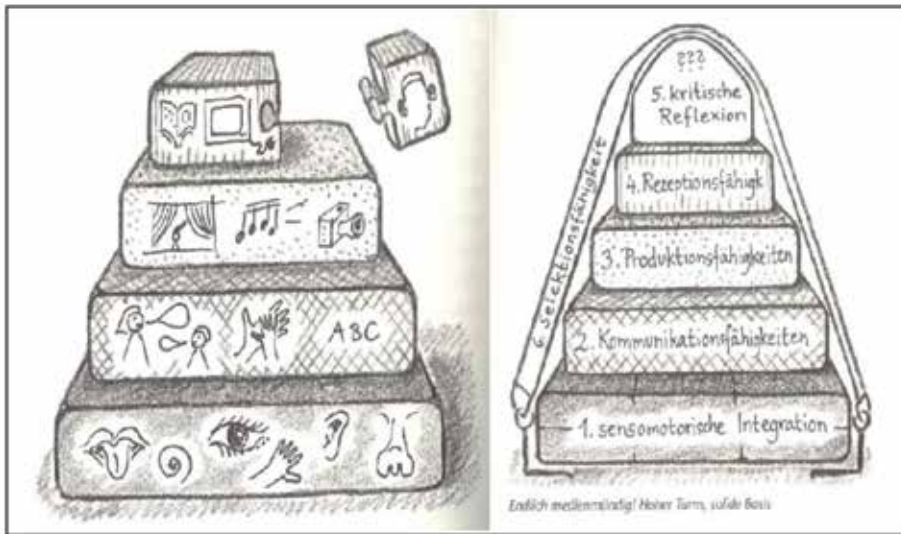 ABC
???
5. kritische
Reflexion
4. Rezeptionsfähigk
3. Produktionsfähigkeiten
2. Kommunikationsfähigkeiten
1. sensomotorische Integration
6. Selektionsfähigkeit
Endlich medienmündig! Hoher Turm, solide Basis